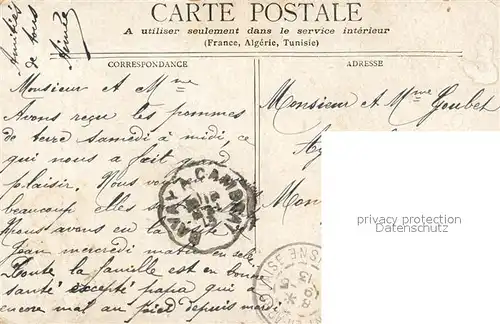 CARTE POSTALE
A utiliser seulement dans le service intérieur
(France, Algérie, Tunisie)
CORRESPONDANCE
ADRESSE
Amitiés
de tous
Monsieur et Mme
Avons reçu les pommes
de terre samedi à midi, ce
qui nous a fait grand
plaisir. Nous vous
beaucoup elles
Nous avons eu la
Jean mercredi matin
Toute la famille est en bonne
santé excepté papa qui a
encore mal au pied depuis
Monsieur et Mme Goubet
privacy protection